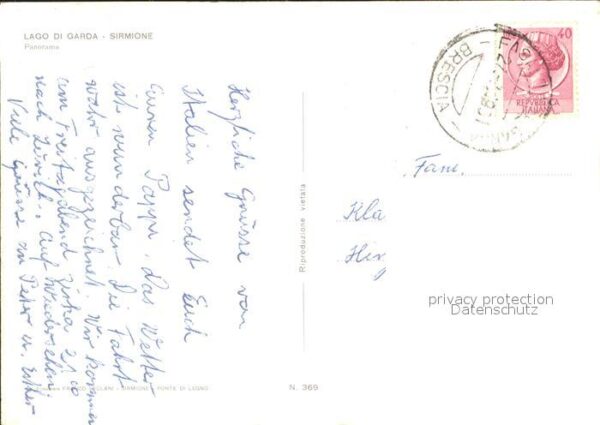 LAGO DI GARDA - SIRMIONE
Panorama
Herzliche Grüsse von
Italien sendet Euch
Euren Pappi. Das Wetter
ist wunderbar. Die Fahrt
war ausgezeichnet. Wir kommen
am Freitagabend zirka 21 00
nach Zürich. Auf Wiedersehen
Viele Grüsse an Peter u. Esther
Riproduzione vietata
N. 369
BRESCIA
40
REPVBBLICA
ITALIANA
Fam.
Kla
Her
privacy protection
Datenschutz
SIRMIONE - PONTE DI LEGNO